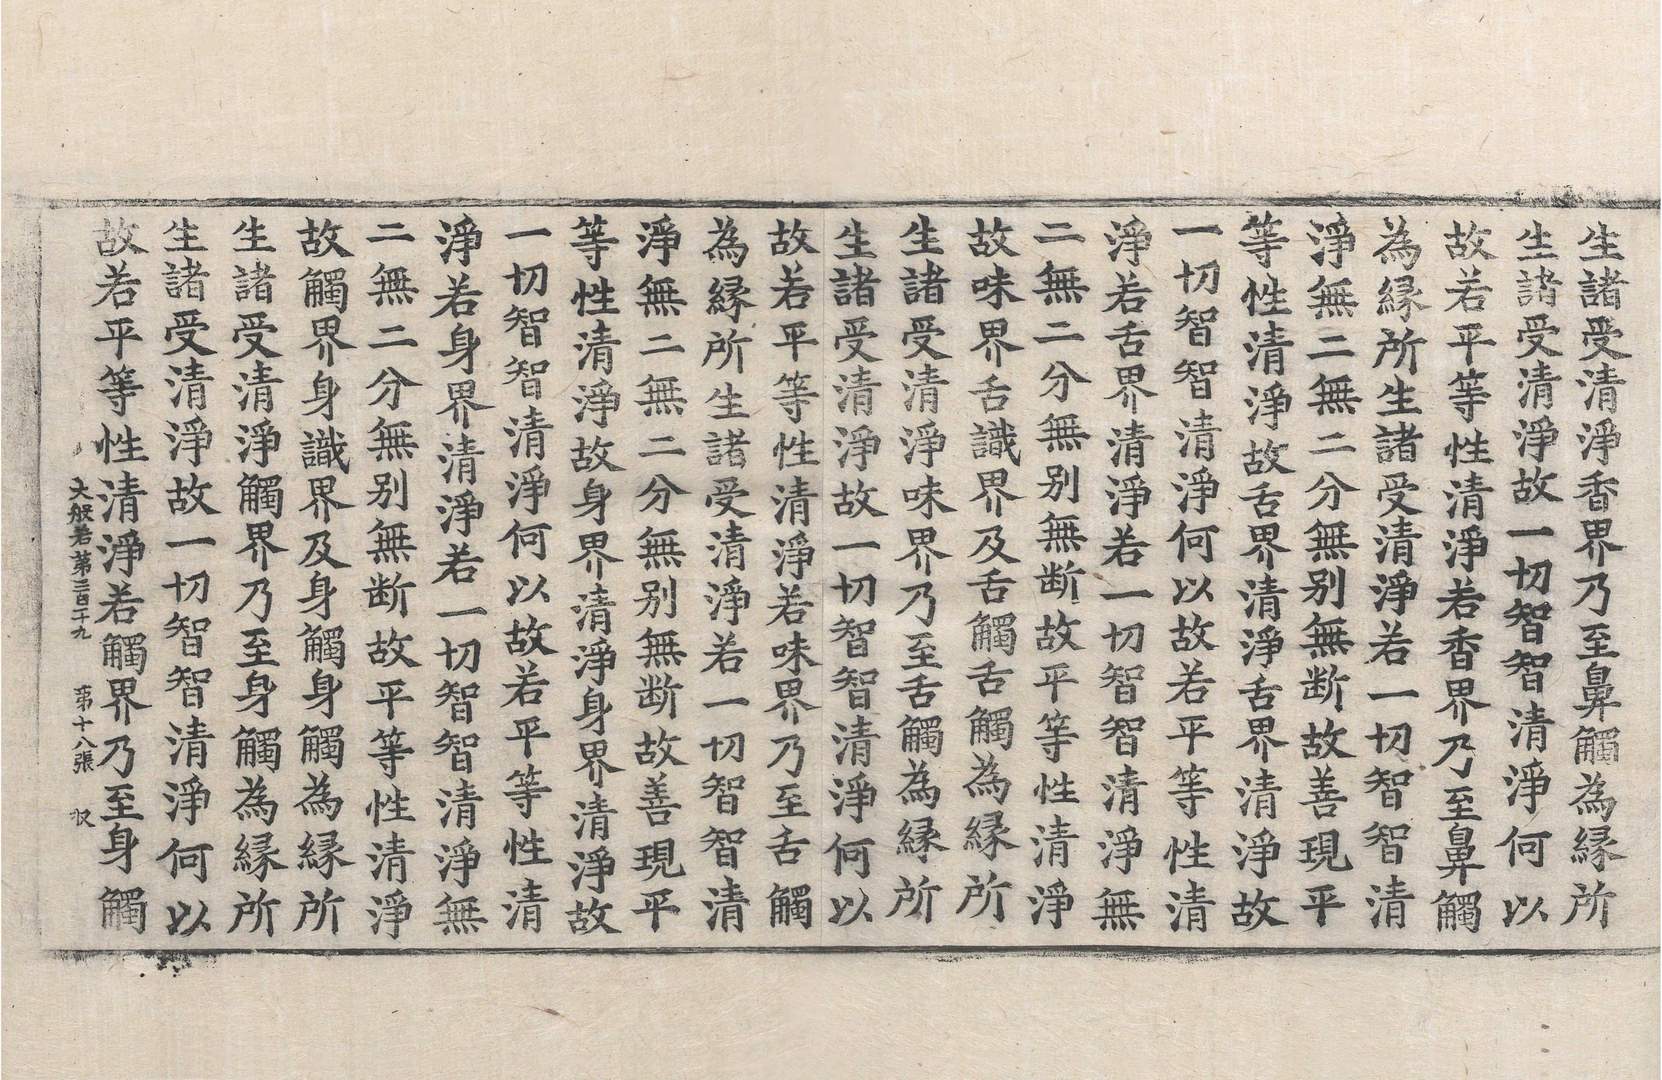 生諸受清淨香界乃至鼻觸為縁所
生諸受清淨故一切智智清淨何以
故若平等性清淨若香界乃至鼻觸
為縁所生諸受清淨若一切智智清
淨無二無二分無别無断故善現平
等性清淨故舌界清淨舌界清淨故
一切智智清淨何以故若平等性清
淨若舌界清淨若一切智智清淨無
二無二分無别無断故平等性清淨
故味界舌識界及舌觸舌觸為縁所
生諸受清淨味界乃至舌觸為縁所
生諸受清淨故一切智智清淨何以
故若平等性清淨若味界乃至舌觸
為縁所生諸受清淨若一切智智清
淨無二無二分無别無断故善現平
等性清淨故身界清淨身界清淨故
一切智智清淨何以故若平等性清
淨若身界清淨若一切智智清淨無
二無二分無别無断故平等性清淨
故觸界身識界及身觸身觸為縁所
生諸受清淨觸界乃至身觸為縁所
生諸受清淨故一切智智清淨何以
故若平等性清淨若觸界乃至身觸
大般若第二百二十九 第十八張 収